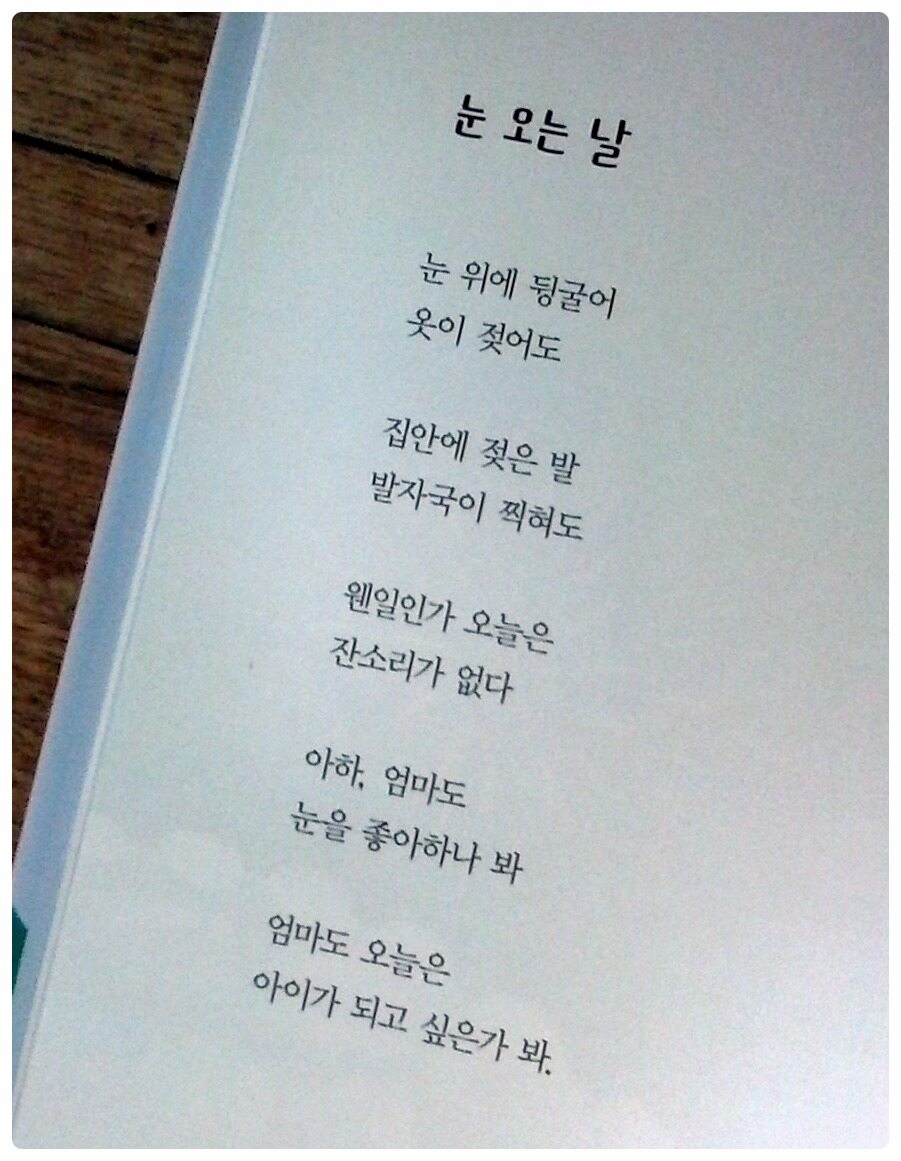 눈 오는 날
눈 위에 뒹굴어
옷이 젖어도
집안에 젖은 발
발자국이 찍혀도
웬일인가 오늘은
잔소리가 없다
아하, 엄마도
눈을 좋아하나 봐
엄마도 오늘은
아이가 되고 싶은가 봐.